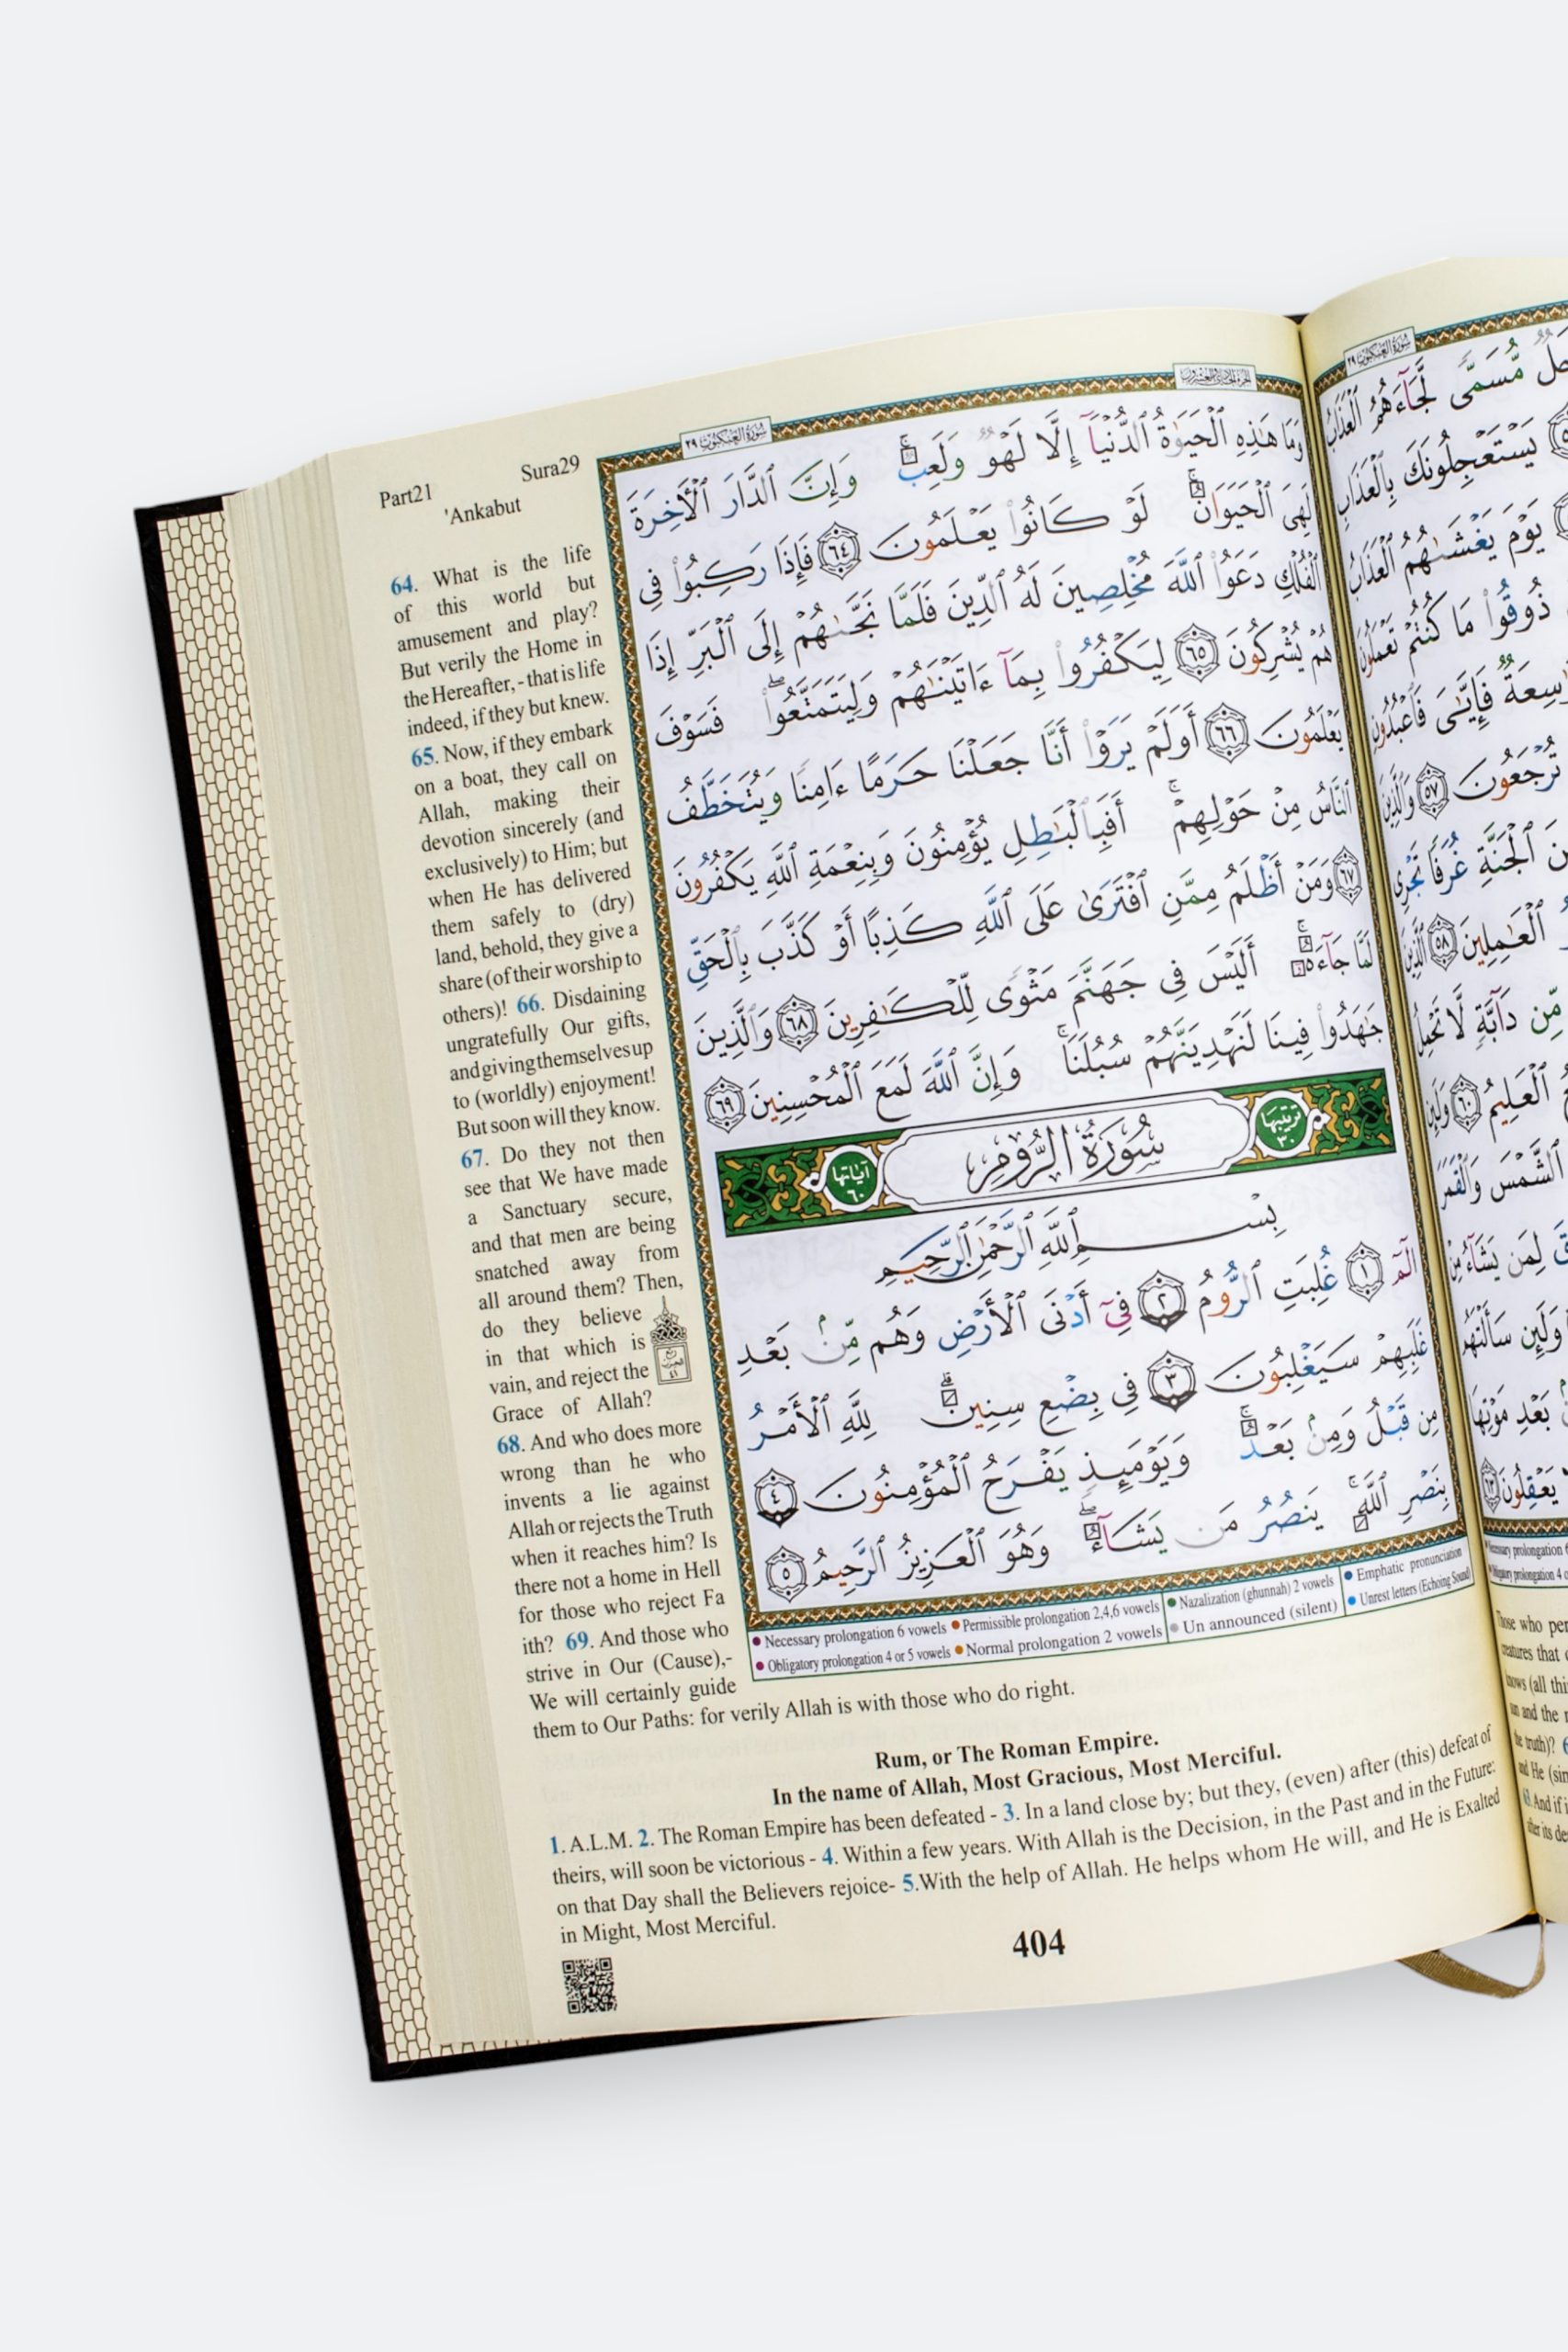 Part21
Sura29
'Ankabut
64. What is the life
of this world but
amusement and play?
But verily the Home in
the Hereafter, - that is life
indeed, if they but knew.
65. Now, if they embark
on a boat, they call on
Allah, making their
devotion sincerely (and
exclusively) to Him; but
when He has delivered
them safely to (dry)
land, behold, they give a
share (of their worship to
others)! 66. Disdaining
ungratefully Our gifts,
and giving themselves up
to (worldly) enjoyment!
But soon will they know.
67. Do they not then
see that We have made
a Sanctuary secure,
and that men are being
snatched away from
all around them? Then,
do they believe
in that which is
vain, and reject the
Grace of Allah?
68. And who does more
wrong than he who
invents a lie against
Allah or rejects the Truth
when it reaches him? Is
there not a home in Hell
for those who reject Fa
ith? 69. And those who
strive in Our (Cause),-
We will certainly guide
them to Our Paths: for verily Allah is with those who do right.
سُورَةُ العَنكَبُوتِ ٢٩
الجزء الحادي والعشرون
وَمَا هَٰذِهِ ٱلْحَيَوٰةُ ٱلدُّنْيَآ إِلَّا لَهْوٌ وَلَعِبٌ ۚ وَإِنَّ ٱلدَّارَ ٱلْءَاخِرَةَ
لَهِىَ ٱلْحَيَوَانُ ۚ لَوْ كَانُوا۟ يَعْلَمُونَ ٦٤ فَإِذَا رَكِبُوا۟ فِى
ٱلْفُلْكِ دَعَوُا۟ ٱللَّهَ مُخْلِصِينَ لَهُ ٱلدِّينَ فَلَمَّا نَجَّىٰهُمْ إِلَى ٱلْبَرِّ إِذَا
هُمْ يُشْرِكُونَ ٦٥ لِيَكْفُرُوا۟ بِمَآ ءَاتَيْنَٰهُمْ وَلِيَتَمَتَّعُوا۟ ۖ فَسَوْفَ
يَعْلَمُونَ ٦٦ أَوَلَمْ يَرَوْا۟ أَنَّا جَعَلْنَا حَرَمًا ءَامِنًا وَيُتَخَطَّفُ
ٱلنَّاسُ مِنْ حَوْلِهِمْ ۚ أَفَبِٱلْبَٰطِلِ يُؤْمِنُونَ وَبِنِعْمَةِ ٱللَّهِ يَكْفُرُونَ
٦٧ وَمَنْ أَظْلَمُ مِمَّنِ ٱفْتَرَىٰ عَلَى ٱللَّهِ كَذِبًا أَوْ كَذَّبَ بِٱلْحَقِّ
لَمَّا جَآءَهُۥٓ ۚ أَلَيْسَ فِى جَهَنَّمَ مَثْوًى لِّلْكَٰفِرِينَ ٦٨ وَٱلَّذِينَ
جَٰهَدُوا۟ فِينَا لَنَهْدِيَنَّهُمْ سُبُلَنَا ۚ وَإِنَّ ٱللَّهَ لَمَعَ ٱلْمُحْسِنِينَ ٦٩
ترتيبها ٣٠
سُورَةُ الرُّومِ
آياتها ٦٠
بِسْمِ ٱللَّهِ ٱلرَّحْمَٰنِ ٱلرَّحِيمِ
الٓمٓ ١ غُلِبَتِ ٱلرُّومُ ٢ فِىٓ أَدْنَى ٱلْأَرْضِ وَهُم مِّنۢ بَعْدِ
غَلَبِهِمْ سَيَغْلِبُونَ ٣ فِى بِضْعِ سِنِينَ ۗ لِلَّهِ ٱلْأَمْرُ
مِن قَبْلُ وَمِنۢ بَعْدُ ۚ وَيَوْمَئِذٍ يَفْرَحُ ٱلْمُؤْمِنُونَ ٤
بِنَصْرِ ٱللَّهِ ۚ يَنصُرُ مَن يَشَآءُ ۖ وَهُوَ ٱلْعَزِيزُ ٱلرَّحِيمُ ٥
Necessary prolongation 6 vowels Permissible prolongation 2,4,6 vowels Nazalization (ghunnah) 2 vowels Emphatic pronunciation
Obligatory prolongation 4 or 5 vowels Normal prolongation 2 vowels Un announced (silent) Unrest letters (Echoing Sound)
Rum, or The Roman Empire.
In the name of Allah, Most Gracious, Most Merciful.
1. A.L.M. 2. The Roman Empire has been defeated - 3. In a land close by; but they, (even) after (this) defeat of
theirs, will soon be victorious - 4. Within a few years. With Allah is the Decision, in the Past and in the Future:
on that Day shall the Believers rejoice- 5.With the help of Allah. He helps whom He will, and He is Exalted
in Might, Most Merciful.
404
سُورَةُ العَنكَبُوتِ ٢٩
مُّسَمًّى لَّجَآءَهُمُ ٱلْعَذَابُ
يَسْتَعْجِلُونَكَ بِٱلْعَذَابِ
يَوْمَ يَغْشَىٰهُمُ ٱلْعَذَابُ
ذُوقُوا۟ مَا كُنتُمْ تَعْمَلُونَ
فَإِيَّٰىَ فَٱعْبُدُونِ
تُرْجَعُونَ ٥٧ وَٱلَّذِينَ
ٱلْجَنَّةِ غُرَفًا تَجْرِى
ٱلْعَٰمِلِينَ ٥٨ ٱلَّذِينَ
مِّن دَآبَّةٍ لَّا تَحْمِلُ
ٱلْعَلِيمُ ٦٠ وَلَئِن
ٱلشَّمْسَ وَٱلْقَمَرَ
لِمَن يَشَآءُ مِنْ
وَلَئِن سَأَلْتَهُم
بَعْدِ مَوْتِهَا
يَعْقِلُونَ ٦٣